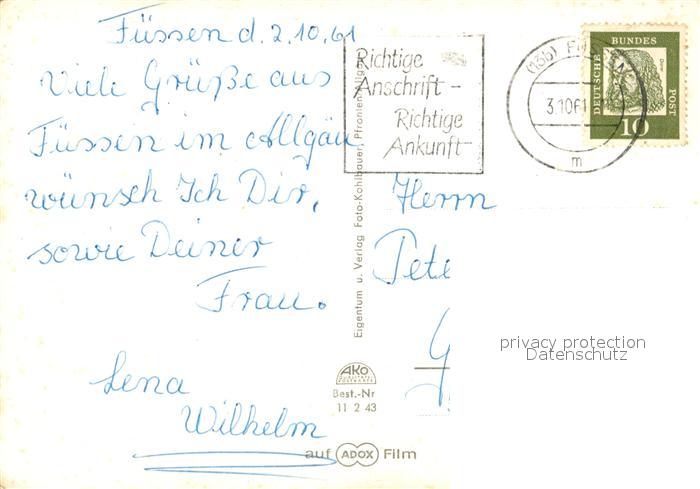 Füssen d. 2.10.61
Viele Grüße aus
Füssen im Allgäu
wünsch Ich Dir,
sowie Deiner
Frau.
Lena
Wilhelm
Richtige
Anschrift –
Richtige
Ankunft
3.10.61
m
DEUTSCHE BUNDES POST
10
Herrn
Pete
privacy protection
Datenschutz
Eigentum u. Verlag Foto-Kohlbauer, Pfronten/Allg
AKO
Best.-Nr
11 2 43
auf ADOX Film